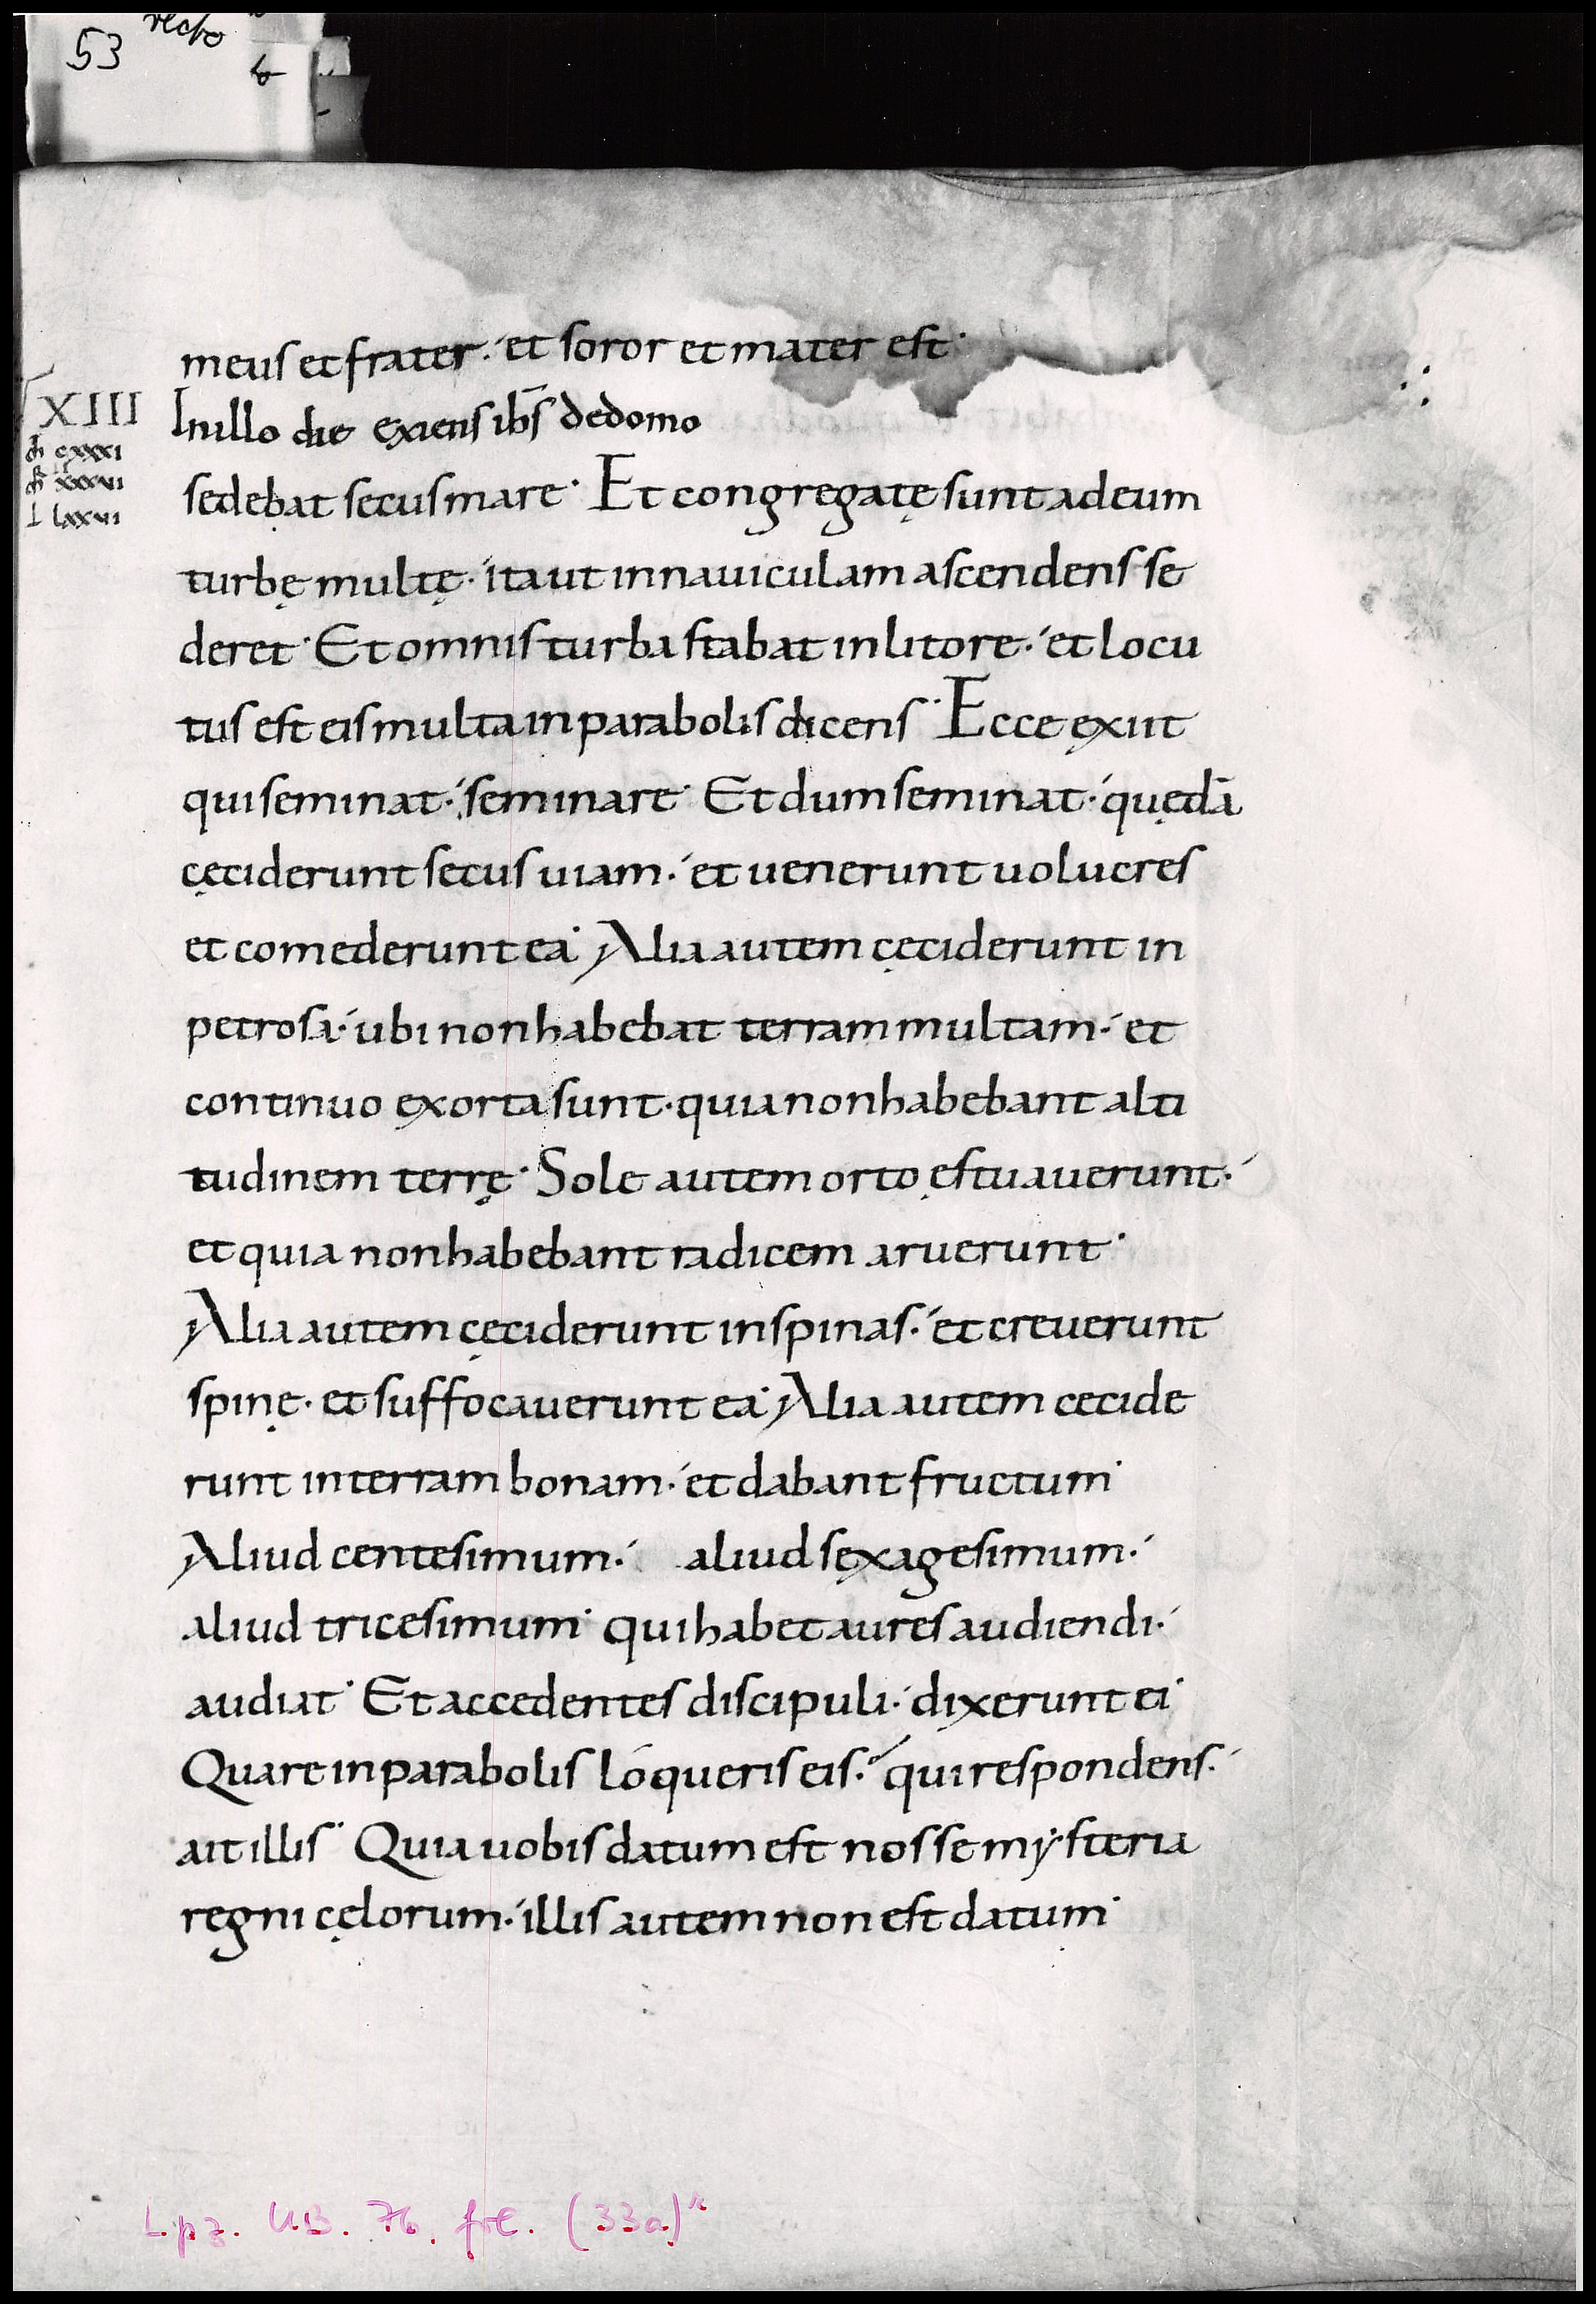 53 recto
b
meus et frater · et soror et mater est ·
XIII
In illo die exiens ihs̄ de domo
cxxxi
xxxvi
L lxxvi
sedebat secus mare · Et congregatę sunt ad eum
turbę multę · ita ut in nauiculam ascendens se
deret · Et omnis turba stabat in litore · et locu
tus est eis multa in parabolis dicens · Ecce exiit
qui seminat · seminare · Et dum seminat · quędā
cęciderunt secus uiam · et uenerunt uolucres
et comederunt ea · Alia autem cęciderunt in
petrosa · ubi non habebat terram multam · et
continuo exorta sunt · quia non habebant alti
tudinem terrę · Sole autem orto ęstuauerunt ·
et quia non habebant radicem aruerunt ·
Alia autem cęciderunt in spinas · et creuerunt
spinę · et suffocauerunt ea · Alia autem cecide
runt in terram bonam · et dabant fructum ·
Aliud centesimum · aliud sexagesimum ·
aliud tricesimum · qui habet aures audiendi ·
audiat · Et accedentes discipuli · dixerunt ei ·
Quare in parabolis lóqueris eis · qui respondens ·
ait illis · Quia uobis datum est nosse mẏsteria
regni cęlorum · illis autem non est datum ·
Lpz. UB. 76. fol. (33a)r